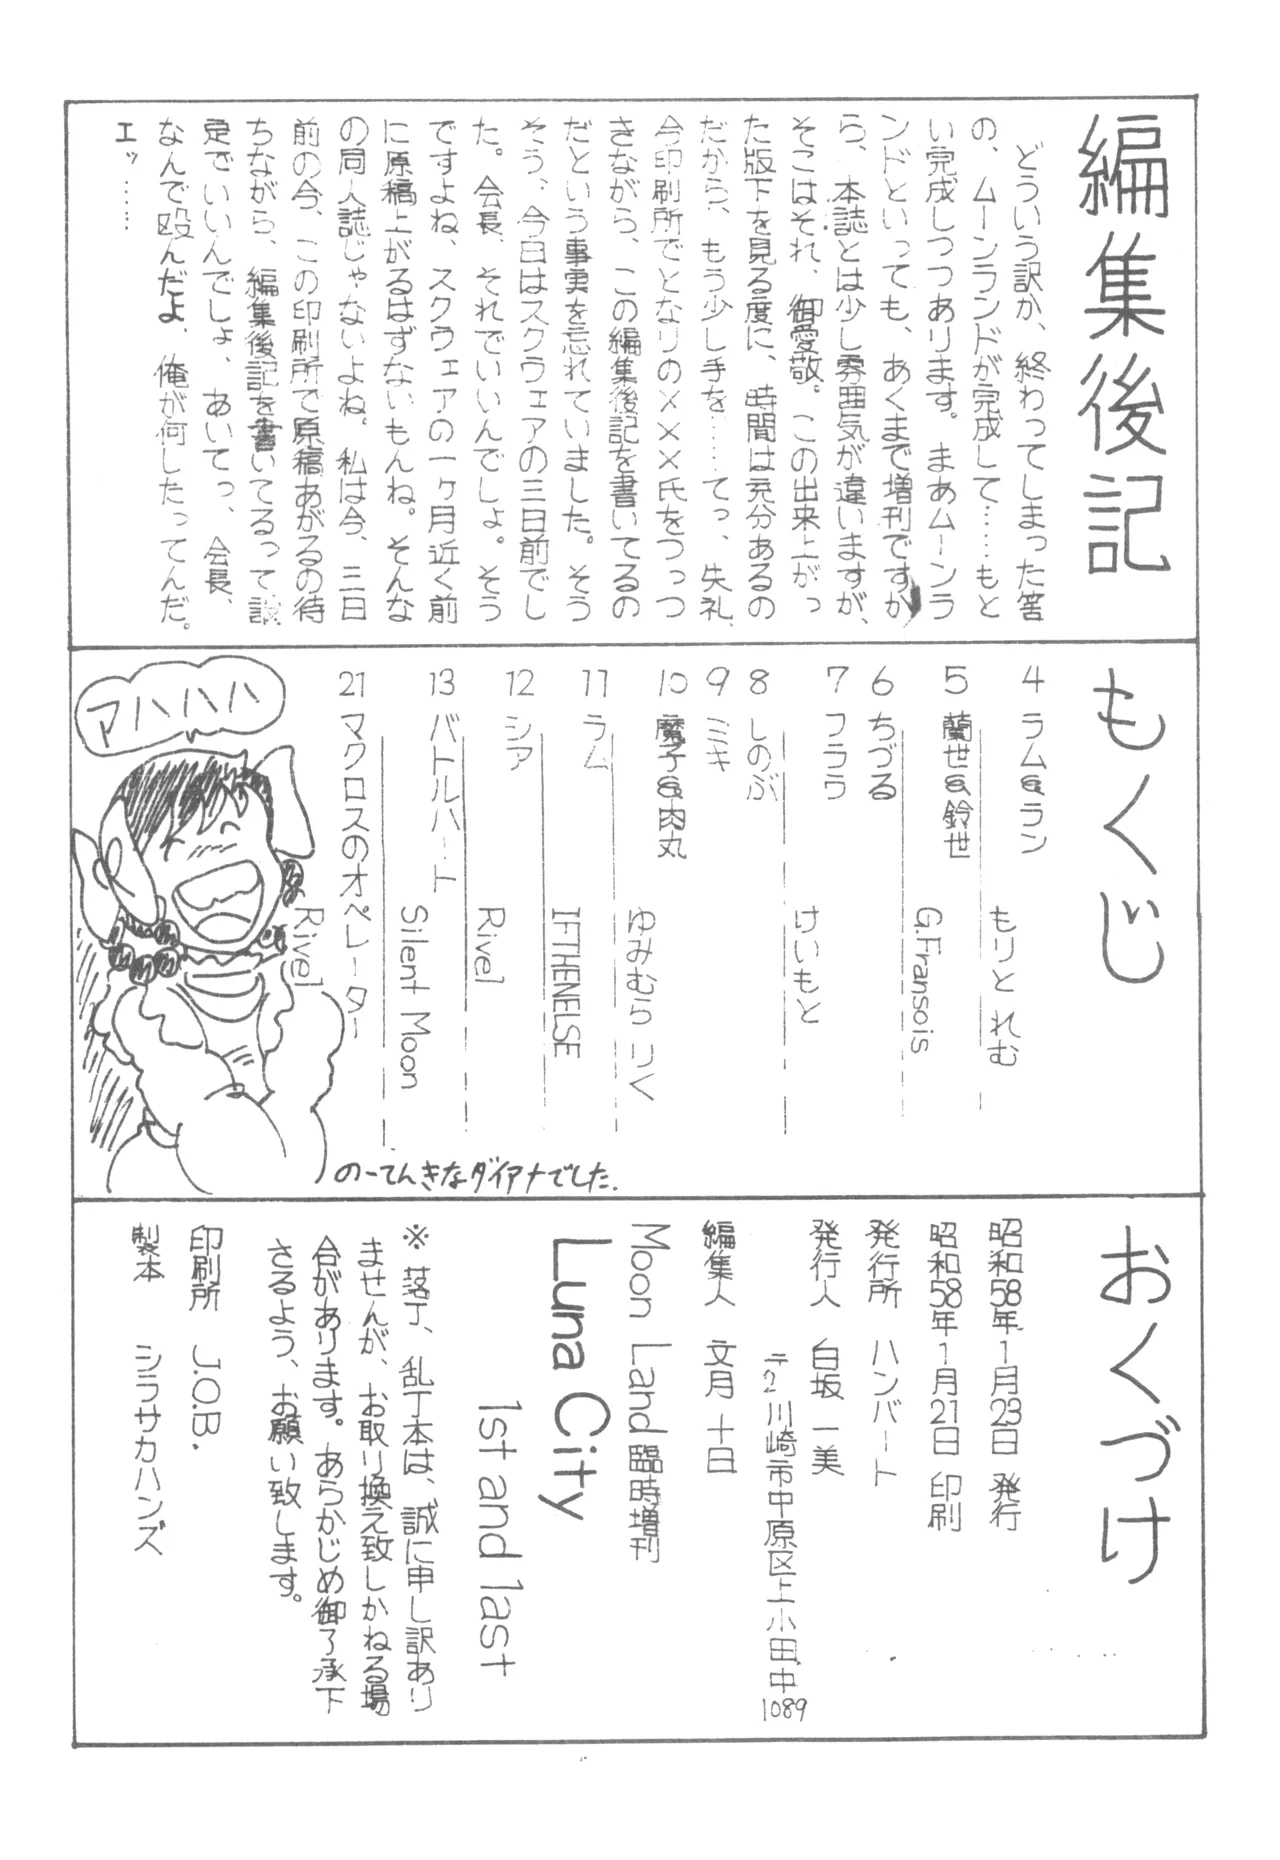 編集後記
どういう訳か、終わってしまった筈
の、ムーンランドが完成して……もと
い完成しつつあります。まあムーンラ
ンドといっても、あくまで増刊ですか
ら、本誌とは少し雰囲気が違いますが、
そこはそれ、御愛敬。この出来上がっ
た版下を見る度に、時間は充分あるの
だから、もう少し手を……てっ、失礼、
今印刷所でとなりの×××氏をつっつ
きながら、この編集後記を書いてるの
だという事実を忘れていました。そう
そう、今日はスクウェアの三日前でし
た。会長、それでいいんでしょ。そう
ですよね、スクウェアの一ヶ月近く前
に原稿上がるはずないもんね。そんな
の同人誌じゃないよね。私は今、三日
前の今、この印刷所で原稿あがるの待
ちながら、編集後記を書いてるって設
定でいいんでしょ、あいてっ、会長、
なんで殴んだよ、俺が何したってんだ。
エッ……
もくじ
4 ラム&ラン
もりと れむ
5 蘭世&鈴世
G.Fransois
6 ちづる
7 フラウ
けいもと
8 しのぶ
9 ミキ
10 魔子&肉丸
ゆみむら リV
11 ラム
IFTHENELSE
12 シア
Rivel
13 バトルハート
Silent Moon
21 マクロスのオペレーター
Rivel
アハハハ
のーてんきなダイアナでした.
おくづけ
昭和58年1月23日 発行
昭和58年1月21日 印刷
発行所 ハンバート
発行人 白坂 一美
〒2 川崎市中原区上小田中
1089
編集人 文月 十日
Moon Land 臨時増刊
Luna City
1st and last
※ 落丁、乱丁本は、誠に申し訳あり
ませんが、お取り換え致しかねる場
合があります。あらかじめ御了承下
さるよう、お願い致します。
印刷所 J.O.B.
製本 シラサカハンズ